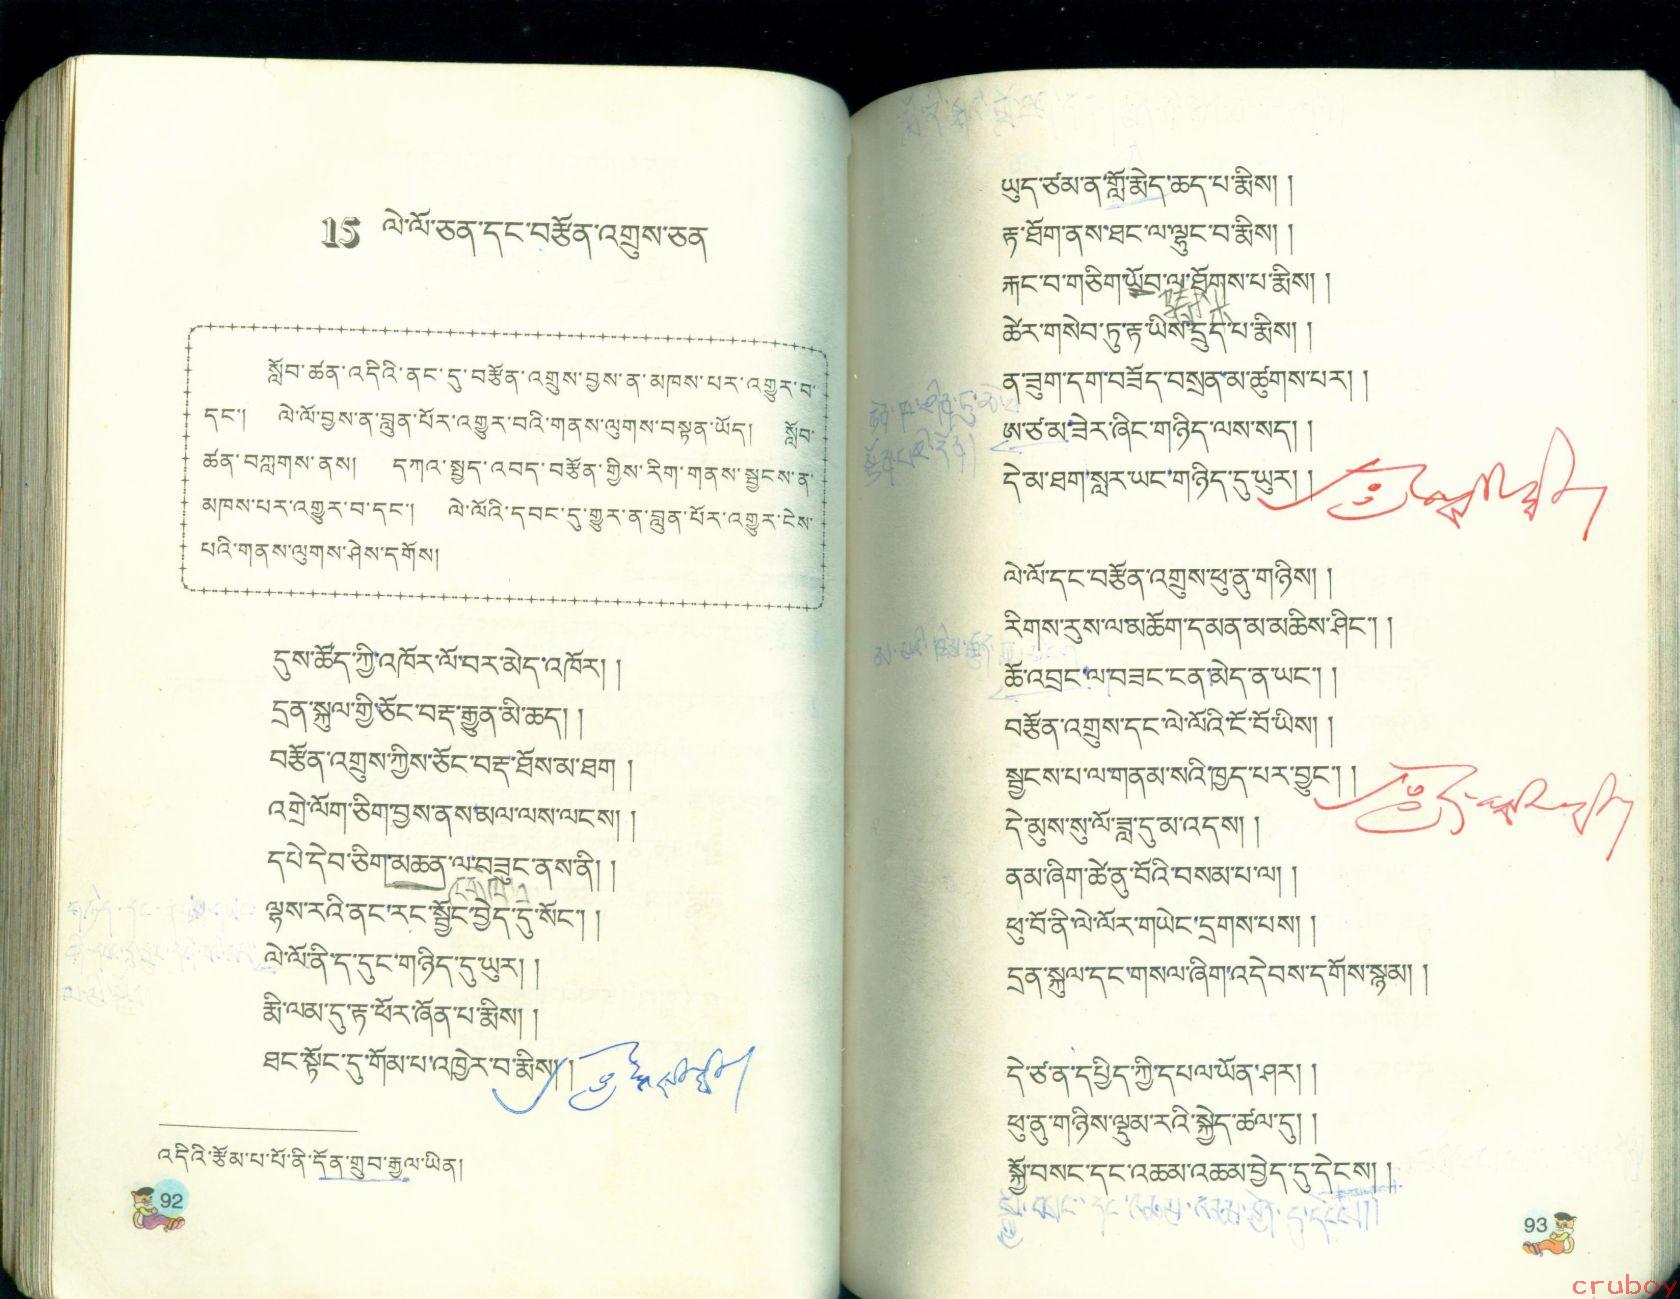 15 ལེ་ལོ་ཅན་དང་བརྩོན་འགྲུས་ཅན
སློབ་ཚན་འདིའི་ནང་དུ་བརྩོན་འགྲུས་བྱས་ན་མཁས་པར་འགྱུར་བ་
དང་། ལེ་ལོ་བྱས་ན་བླུན་པོར་འགྱུར་བའི་གནས་ལུགས་བསྟན་ཡོད། སློབ་
ཚན་བཀླགས་ནས། དཀའ་སྤྱད་འབད་བརྩོན་གྱིས་རིག་གནས་སྦྱངས་ན་
མཁས་པར་འགྱུར་བ་དང་། ལེ་ལོའི་དབང་དུ་གྱུར་ན་བླུན་པོར་འགྱུར་ངེས་
པའི་གནས་ལུགས་ཤེས་དགོས།
དུས་ཚོད་ཀྱི་འཁོར་ལོ་བར་མེད་འཁོར། །
དྲན་སྐུལ་གྱི་ཅོང་བརྡ་རྒྱུན་མི་ཆད། །
བརྩོན་འགྲུས་ཀྱིས་ཅོང་བརྡ་ཐོས་མ་ཐག །
འགྲེ་ལོག་ཅིག་བྱས་ནས་མལ་ལས་ལངས། །
དཔེ་དེབ་ཅིག་མཆན་ལ་བཟུང་ནས་ནི། །
ལྷས་རའི་ནང་རང་སྦྱོང་བྱེད་དུ་སོང་། །
ལེ་ལོ་ནི་ད་དུང་གཉིད་དུ་ཡུར། །
རྨི་ལམ་དུ་རྟ་ཕོར་ཞོན་པ་རྨིས། །
ཐང་སྟོང་དུ་གོམ་པ་འཁྱེར་བ་རྨིས། །
འདིའི་རྩོམ་པ་པོ་ནི་དོན་གྲུབ་རྒྱལ་ཡིན།
92
ཡུད་ཙམ་ན་གློ་རྨེད་ཆད་པ་རྨིས། །
རྟ་ཐོག་ནས་ཐང་ལ་ལྷུང་བ་རྨིས། །
རྐང་བ་གཅིག་ཡོབ་ལ་ཐོགས་པ་རྨིས། །
ཚེར་གསེབ་ཏུ་རྟ་ཡིས་དྲུད་པ་རྨིས། །
ན་ཟུག་དག་བཟོད་བསྲན་མ་ཚུགས་པར། །
ཨ་ཙ་མ་ཟེར་ཞིང་གཉིད་ལས་སད། །
དེ་མ་ཐག་སླར་ཡང་གཉིད་དུ་ཡུར། །
ལེ་ལོ་དང་བརྩོན་འགྲུས་ཕུ་ནུ་གཉིས། །
རིགས་རུས་ལ་མཆོག་དམན་མ་མཆིས་ཤིང་། །
ཆོ་འབྲང་ལ་བཟང་ངན་མེད་ན་ཡང་། །
བརྩོན་འགྲུས་དང་ལེ་ལོའི་ངོ་བོ་ཡིས། །
སྦྱངས་པ་ལ་གནམ་སའི་ཁྱད་པར་བྱུང་། །
དེ་མུས་སུ་ལོ་ཟླ་དུ་མ་འདས། །
ནམ་ཞིག་ཚེ་ནུ་བོའི་བསམ་པ་ལ། །
ཕུ་བོ་ནི་ལེ་ལོར་གཡེང་དྲགས་པས། །
དྲན་སྐུལ་དང་གསལ་ཞིག་འདེབས་དགོས་སྙམ། །
དེ་ཙན་དཔྱིད་ཀྱི་དཔལ་ཡོན་ཤར། །
ཕུ་ནུ་གཉིས་ལྡུམ་རའི་སྐྱེད་ཚལ་དུ། །
སྐྱོ་བསང་དང་འཆམ་འཆམ་བྱེད་དུ་དེངས། །
93
cruboy